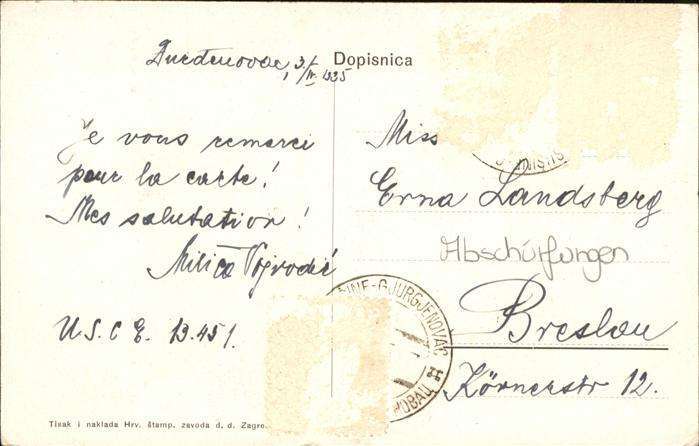 Đurđenovac, 3./IV 1935
Dopisnica
Je vous remerci
pour la carte!
Mes salutation!
Milica
U.S.C E. 13.451.
Miss
Erna Landsberg
Abschürfungen
Breslau
Körnerstr 12.
GJURGJENOVAC
Tisak i naklada Hrv. štamp. zavoda d. d. Zagre